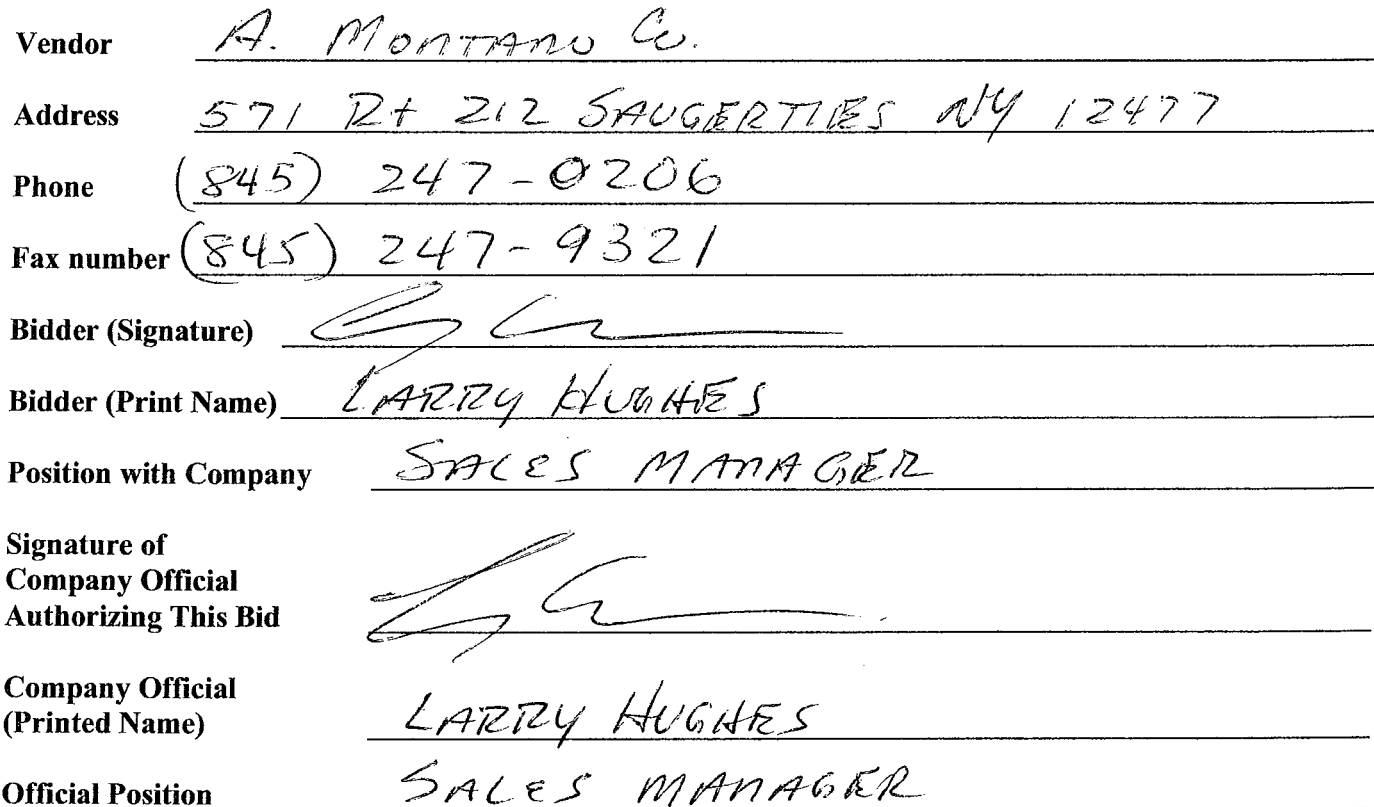 Vendor A. MONTANO Co.
Address 571 Rt 212 SAUGERTIES NY 12477
Phone (845) 247-0206
Fax number (845) 247-9321
Bidder (Signature)
Bidder (Print Name) LARRY HUGHES
Position with Company SALES MANAGER
Signature of
Company Official
Authorizing This Bid
Company Official
(Printed Name) LARRY HUGHES
Official Position SALES MANAGER